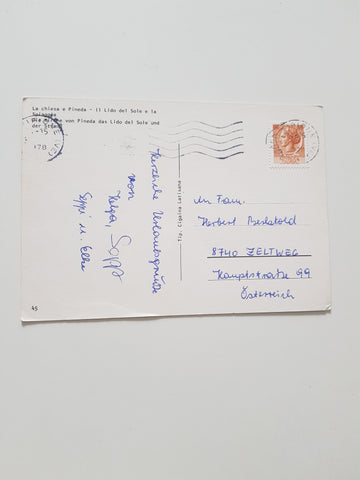 La chiesa e Pineda - Il Lido del Sole e la
Spiaggia
Die Kirche von Pineda das Lido del Sole und
der Strand
Herzliche Urlaubsgrüße
von
Helga, Sepp
Seppi u. Elke
Tip. Cigaina Latisana
An Fam.
Herbert Berktold
8740 ZELTWEG
Hauptstraße 99
Österreich
45